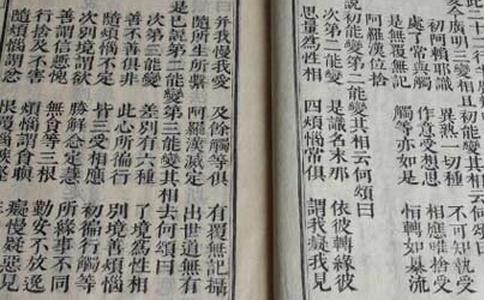 廣明三變相且初能變其相云何頌曰
初阿賴耶識 異熟一切種 不可知執受
處了常與觸 作意受想思 相應唯捨受
是無覆無記 觸等亦如是 恒轉如暴流
阿羅漢位捨
初能變第二能變其相云何頌曰
次第二能變 是識名末那 依彼轉緣彼
思量為性相 四煩惱常俱 謂我癡我見
并我慢我愛 及餘觸等俱 有覆無記攝
隨所生所繫 阿羅漢滅定 出世道無有
是已說第二能變第三能變其相云何頌曰
次第三能變 差別有六種 了境為性相
善不善俱非 此心所徧行 別境善煩惱
皆三受相應 初徧行觸等
次別境謂欲 勝解念定慧 所緣事不同
善謂信慚愧 無貪等三根 勤安不放逸
行捨及不害 煩惱謂貪瞋 癡慢疑惡見
隨煩惱謂忿